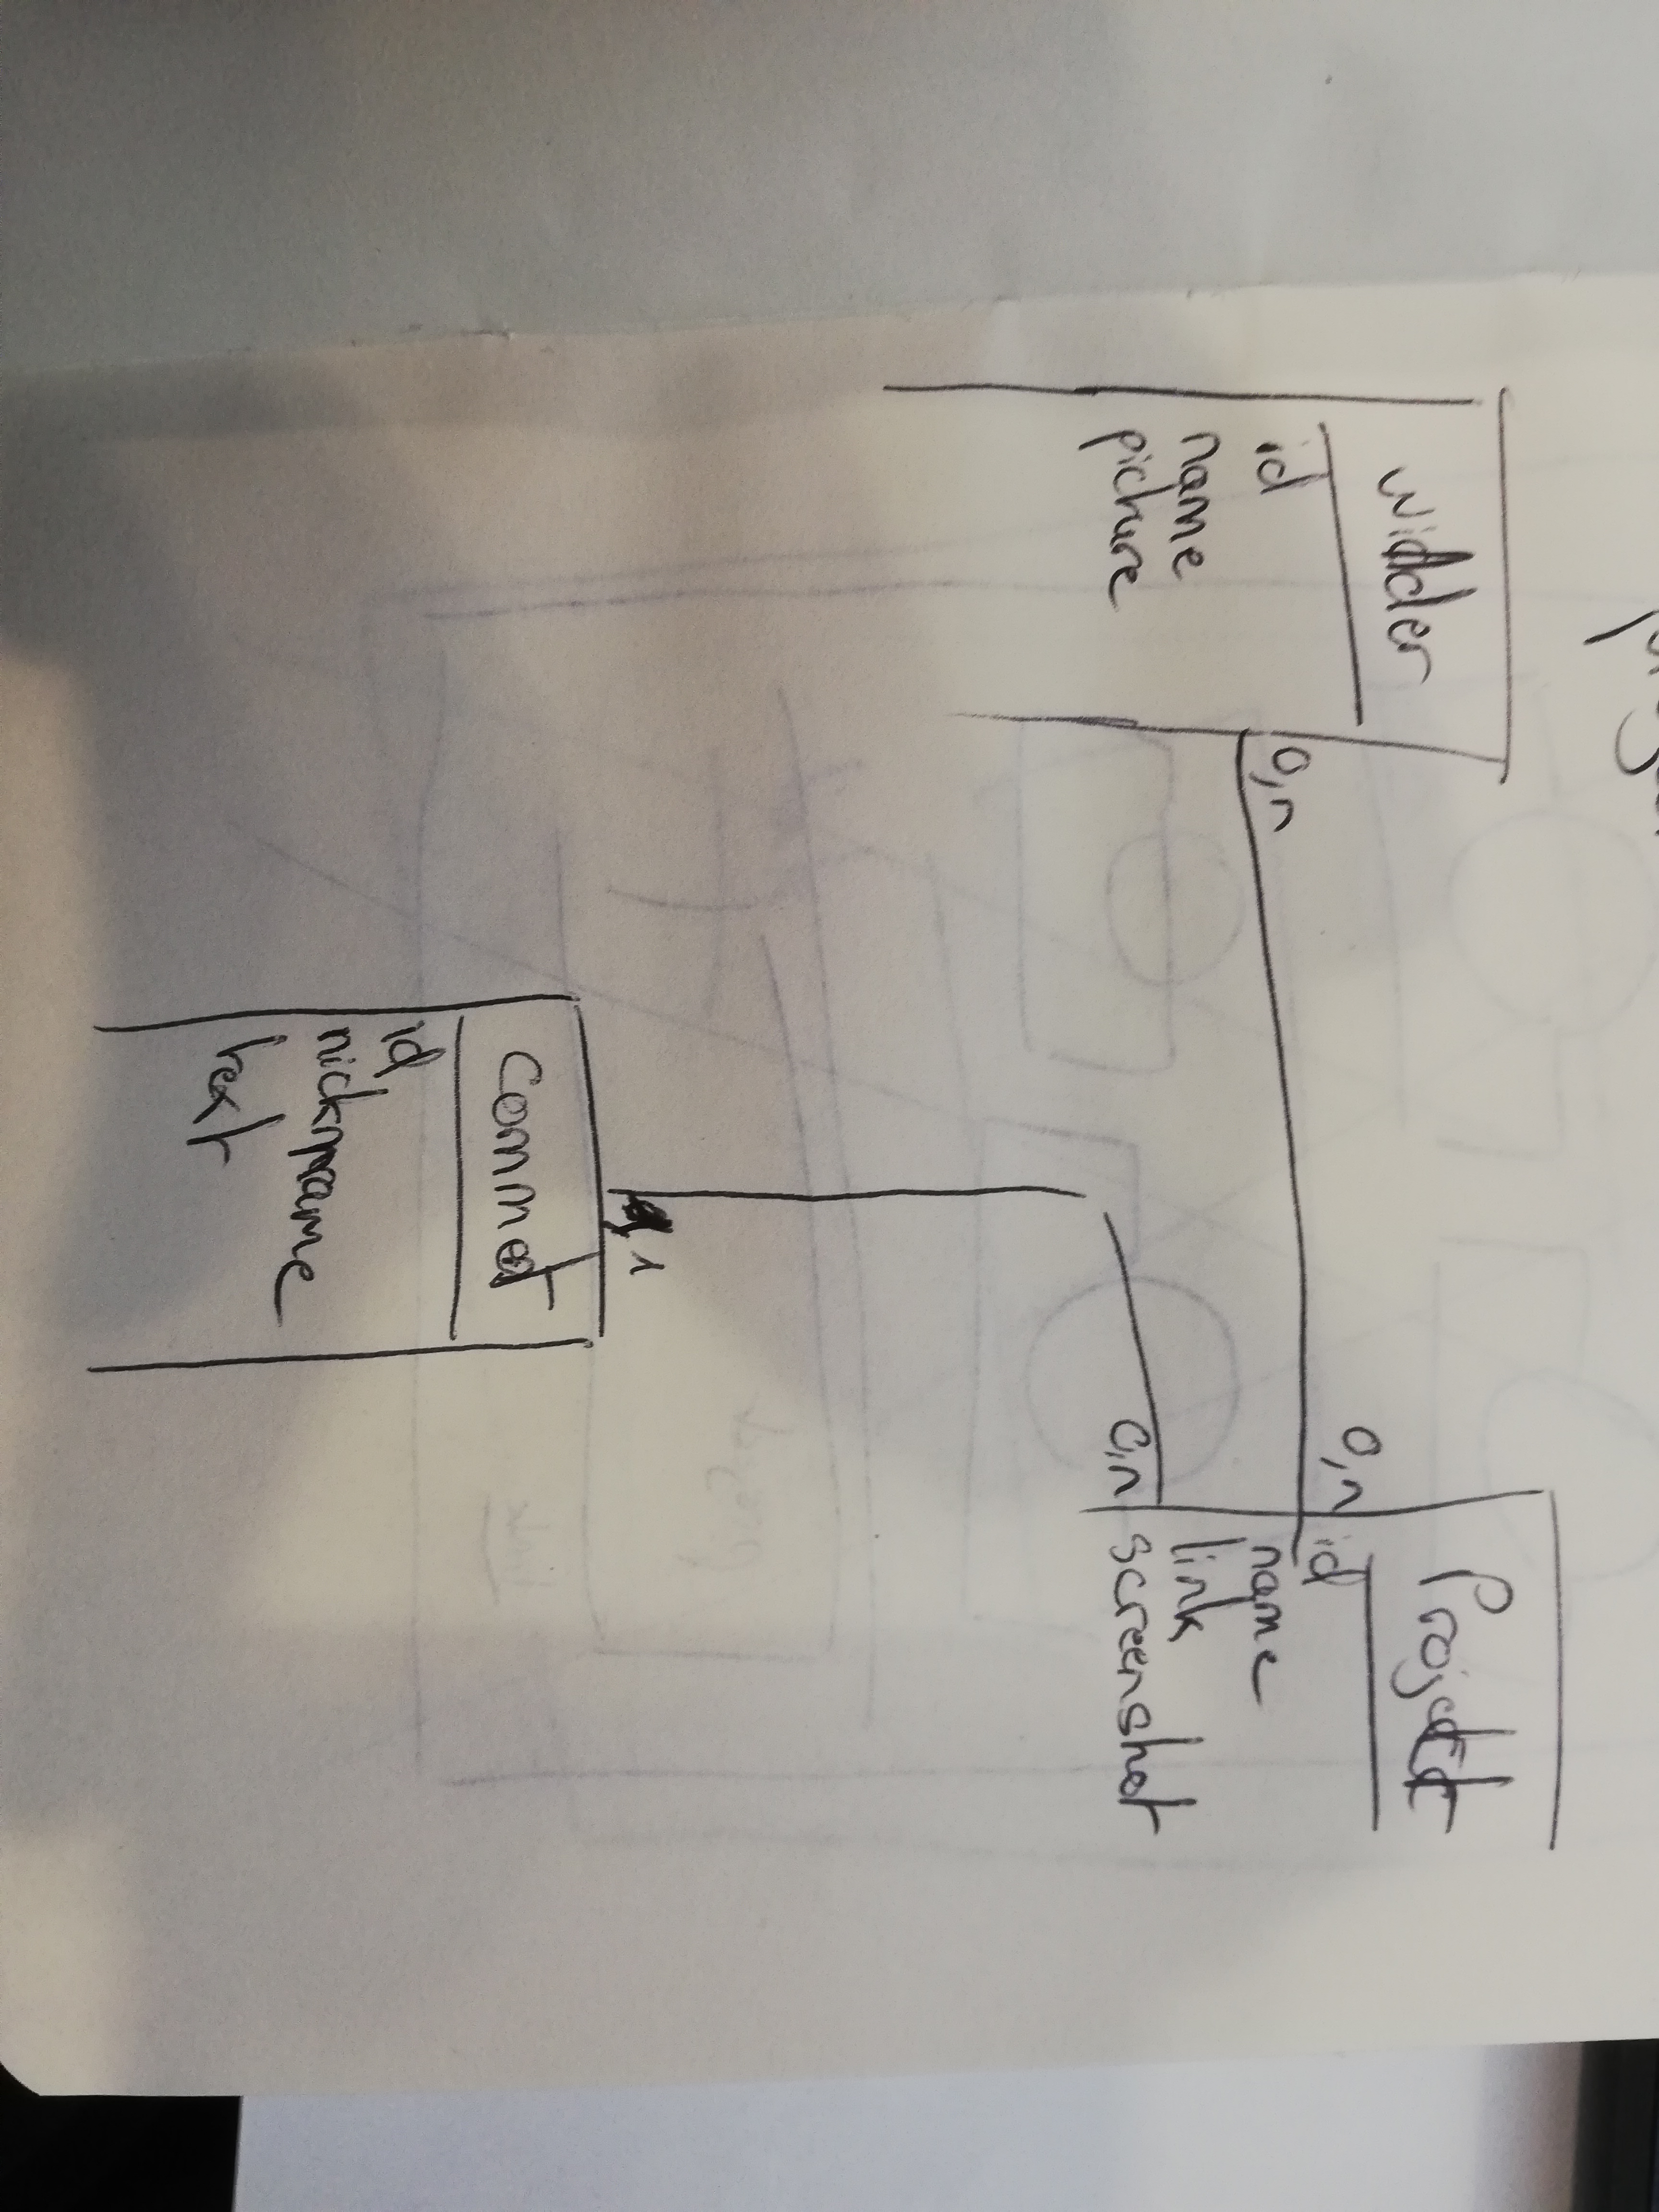 wilder
id
name
picture
0,n
0,n
Project
id
name
link
screenshot
0,n
,1
Commet
id
nickname
text